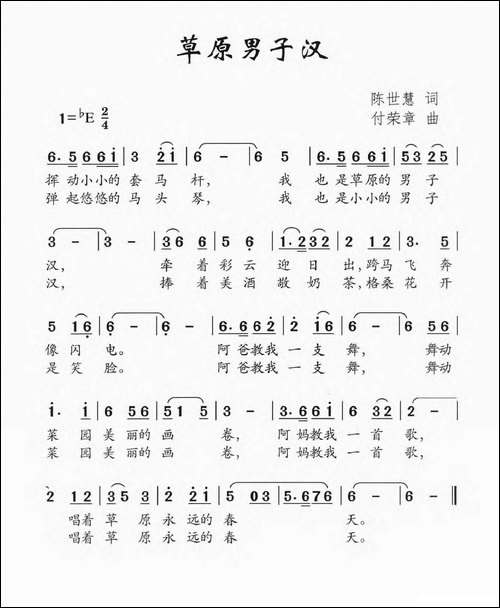 草原男子汉
陈世慧 词
1=♭E 2/4
付荣章 曲
6· 5 6 6 i | 3 2 i | 6 - | 6 5 | 6· 6 6 i | 5 3 2 5 |
挥动小小的套马杆， 我 也是草原的男子
弹起悠悠的马头琴， 我 也是小小的男子
3 - | 3 - | 3 6 6 | 5 6 | 1· 2 3 2 | 2 1 2 | 0 3 5 |
汉， 牵着彩云迎日出，跨马飞奔
汉， 捧着美酒敬奶茶，格桑花开
5 1 6 | 6 - | 6 - | 6· 6 6 2 | 2 1 6 | 6 - | 6 5 6 |
像闪电。 阿爸教我一支舞， 舞动
是笑脸。 阿爸教我一支舞， 舞动
1· i | 6 5 6 | 5 1 5 | 3 - | 3· 6 6 i | 6 3 2 | 2 - |
菜园美丽的画卷，阿妈教我一首歌，
菜园美丽的画卷，阿妈教我一首歌，
2 1 2 | 3 5 3 | 2 2 i | 5 0 3 | 5· 6 7 6 | 6 - | 6 - ‖
唱着草原永远的春 天。
唱着草原永远的春 天。